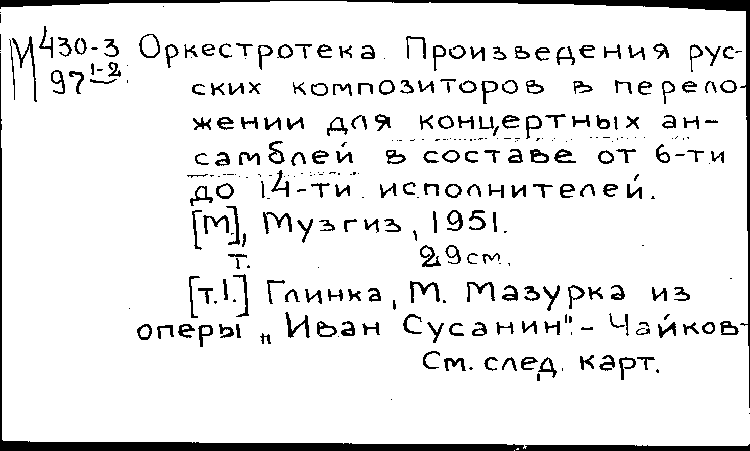 М 430-3 Оркестротека. Произведения рус-
97 1-2 ских композиторов в перело-
жении для концертных ан-
самблей в составе от 6-ти
до 14-ти исполнителей.
[М], Музгиз, 1951.
т. 29 см.
[т.1.] Глинка, М. Мазурка из
оперы „Иван Сусанин".- Чайков-
См. след. карт.